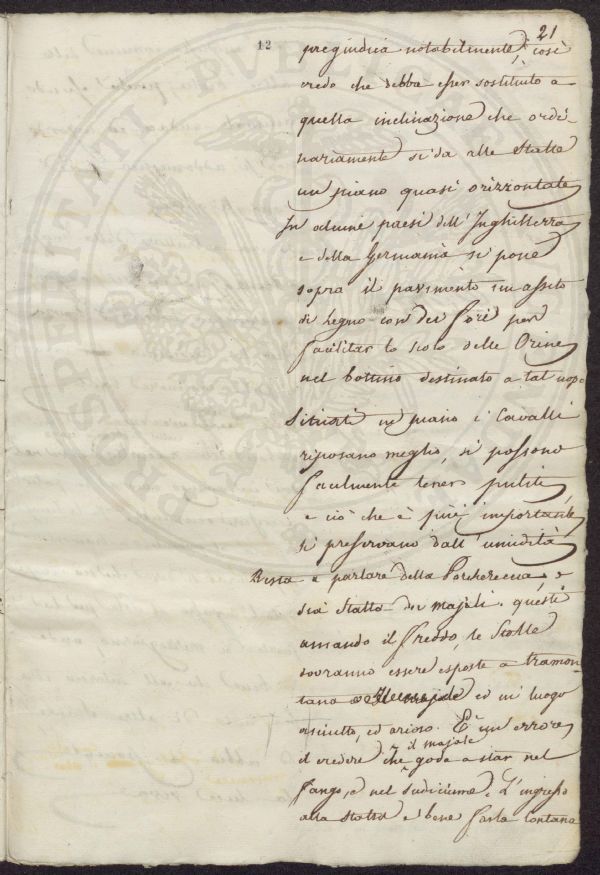 21
12
pregiudica notabilmente, così
credo che debba esser sostituito a
quella inclinazione che ordi-
nariamente si da alle Stalle
un piano quasi orizzontale
In alcuni paesi dell'Inghilterra
e della Germania si pone
sopra il pavimento un assito
di legno con dei fori per
facilitar lo scolo delle Orine
nel bottino destinato a tal uopo
Situati in piano i Cavalli
riposano meglio, si possono
facilmente tener puliti,
e ciò che è più importante
si preservano dall'umidità
Resta a parlare della Porchereccia, o
sia Stalla dei majali. questi
amando il freddo, le Stalle
dovranno essere esposte a tramon-
tana ed in luogo
asciutto, ed arioso. È un errore
il credere che il majale goda a star nel
fango, e nel sudiciume. L'ingresso
alla stalla è bene farla lontana
PROSPERITATI PUBLICAE